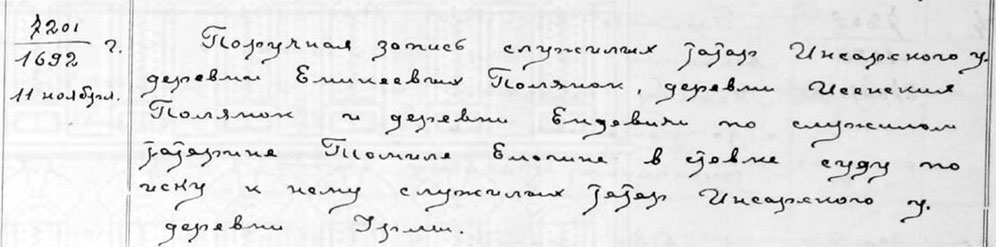 7201
1692 г.
11 ноября.
Поручная запись служилых татар Инсарского у.
деревни Еникеевых Полянок, деревни Исенские
Полянок и деревни по служилом
татарине Томиле в ставке суду по
иску к нему служилых татар Инсарского у.
деревни